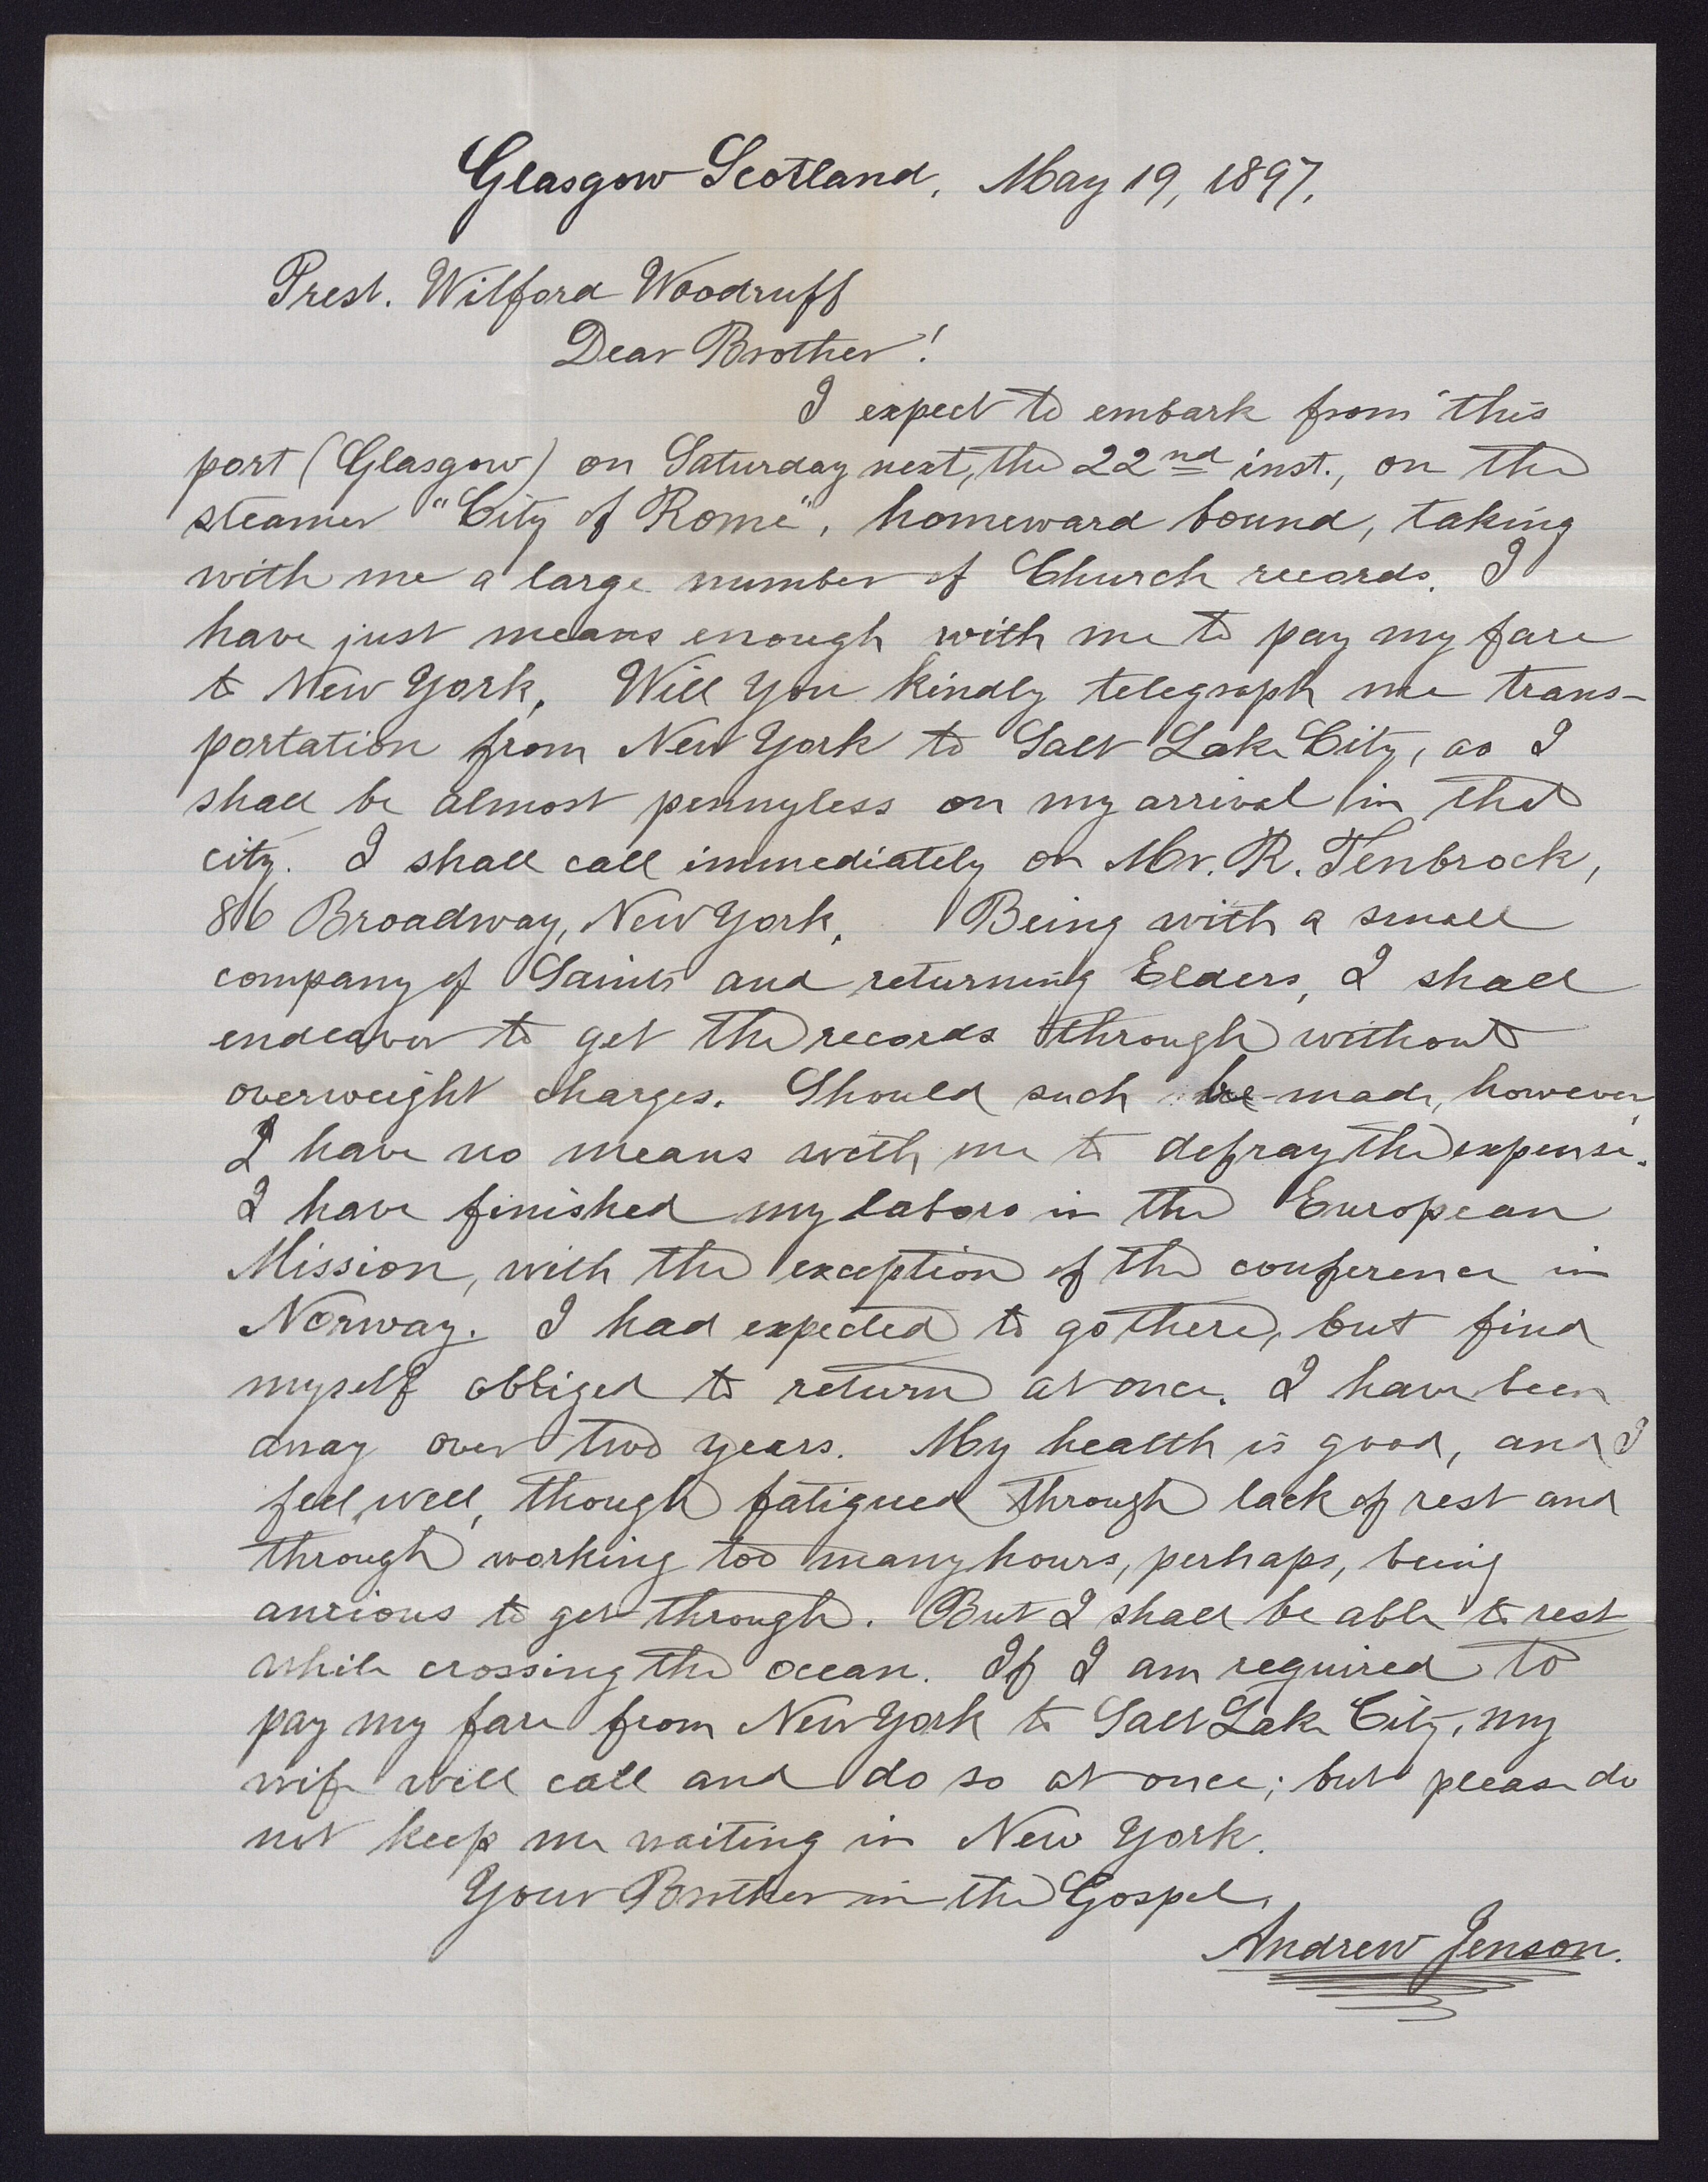 Glasgow Scotland, May 19, 1897.
Prest. Wilford Woodruff
Dear Brother!
I expect to embark from this
port (Glasgow) on Saturday next, the 22nd inst., on the
steamer "City of Rome", homeward bound, taking
with me a large number of Church records. I
have just means enough with me to pay my fare
to New York. Will you kindly telegraph me trans-
portation from New York to Salt Lake City, as I
shall be almost pennyless on my arrival in that
city. I shall call immediately on Mr. R. Tenbrock,
86 Broadway, New York. Being with a small
company of Saints and returning Elders, I shall
endeavor to get the records through without
overweight charges. Should such be made, however,
I have no means with me to defray the expense.
I have finished my labors in the European
Mission, with the exception of the conference in
Norway. I had expected to go there, but find
myself obliged to return at once. I have been
away over two years. My health is good, and I
feel well, though fatigued through lack of rest and
through working too many hours, perhaps, being
anxious to get through. But I shall be able to rest
while crossing the ocean. If I am required to
pay my fare from New York to Salt Lake City, my
wife will call and do so at once; but please do
not keep me waiting in New York.
Your Brother in the Gospel,
Andrew Jenson.